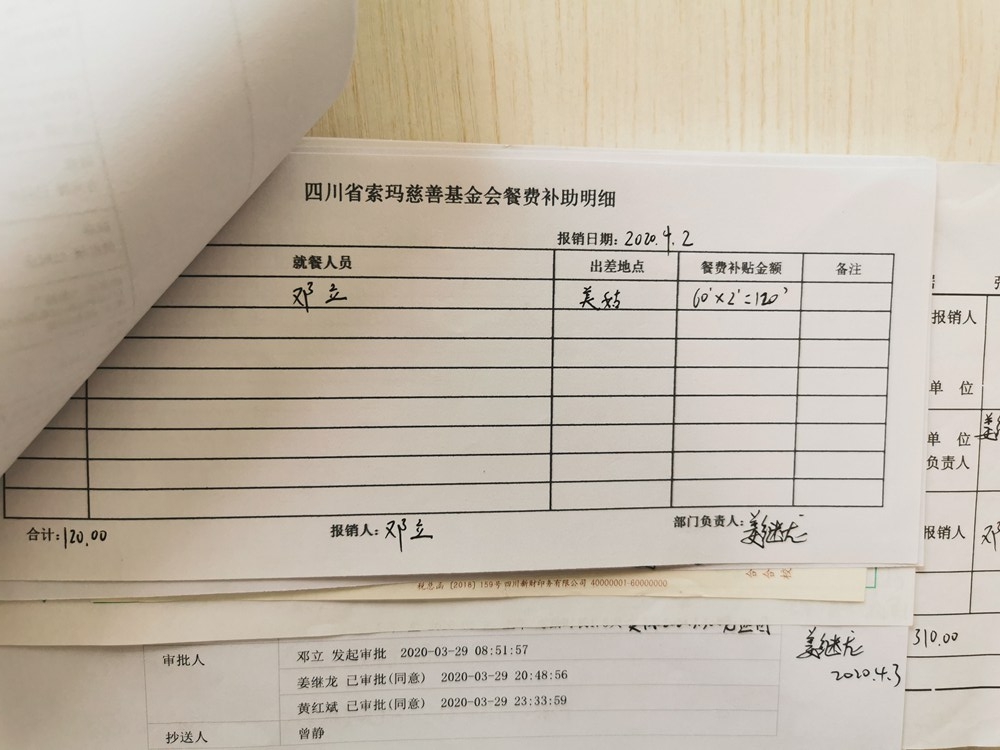 四川省索玛慈善基金会餐费补助明细
报销日期: 2020.4.2
就餐人员 出差地点 餐费补贴金额 备注
邓立 美姑 60×2=120
合计: 120.00 报销人: 邓立 部门负责人: 姜继龙
税总函〔2018〕159号四川新财印务有限公司 40000001-60000000
审批人
邓立 发起审批 2020-03-29 08:51:57
姜继龙 已审批(同意) 2020-03-29 20:48:56
黄红斌 已审批(同意) 2020-03-29 23:33:59
抄送人 曾静
姜继龙
2020.4.3
报销人
单 位
单 位
负责人
报销人
310.00